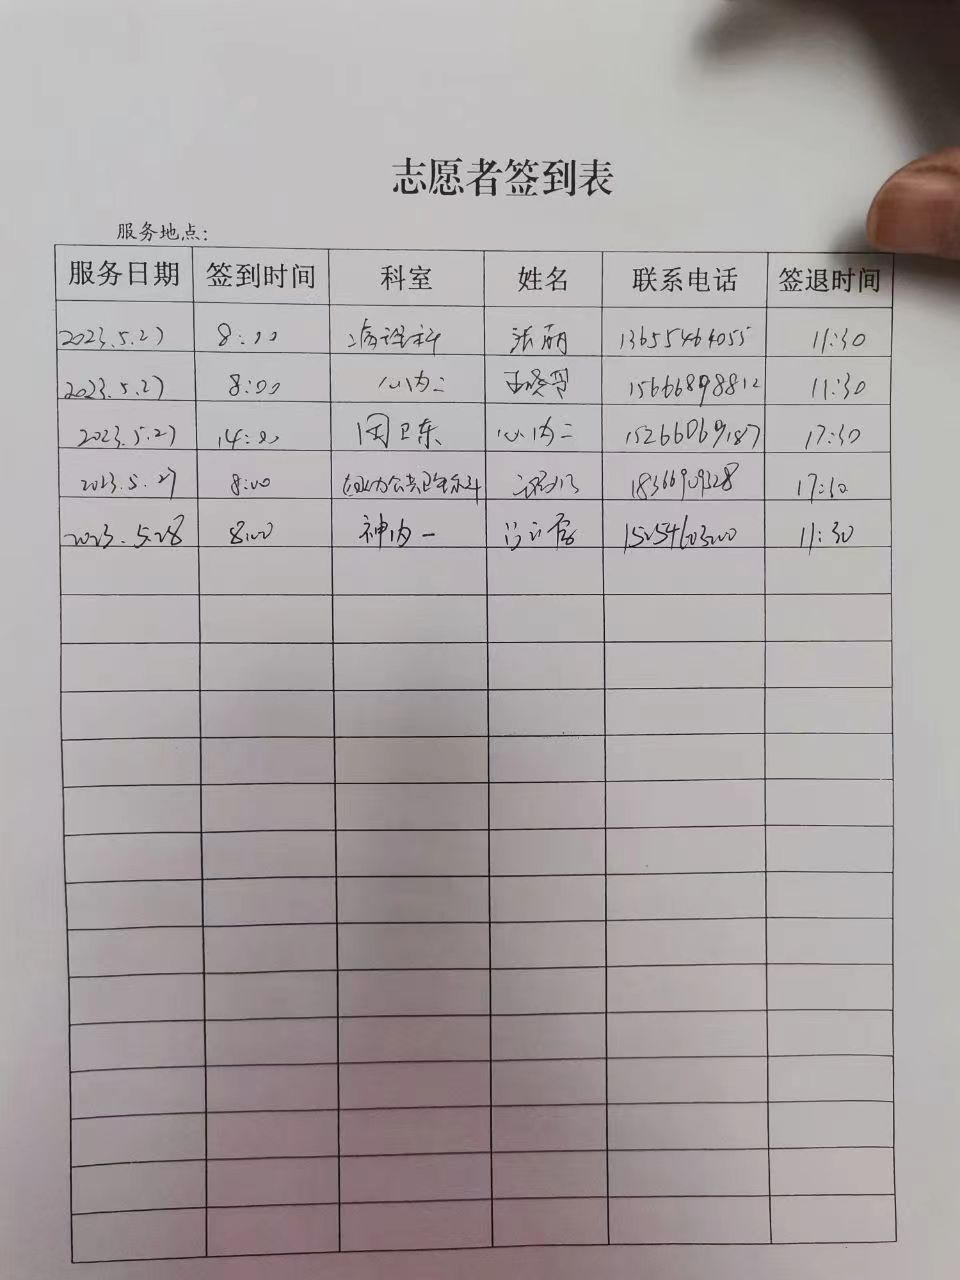 志愿者签到表
服务地点:
服务日期 签到时间 科室 姓名 联系电话 签退时间
2023.5.27 8:00 病理科 张萌 13655464055 11:30
2023.5.27 8:00 心内二 15666898812 11:30
2023.5.27 14:00 闵卫东 心内二 15266069187 17:30
2023.5.27 8:00 18366909328 17:30
2023.5.28 8:00 神内一 15254603200 11:30